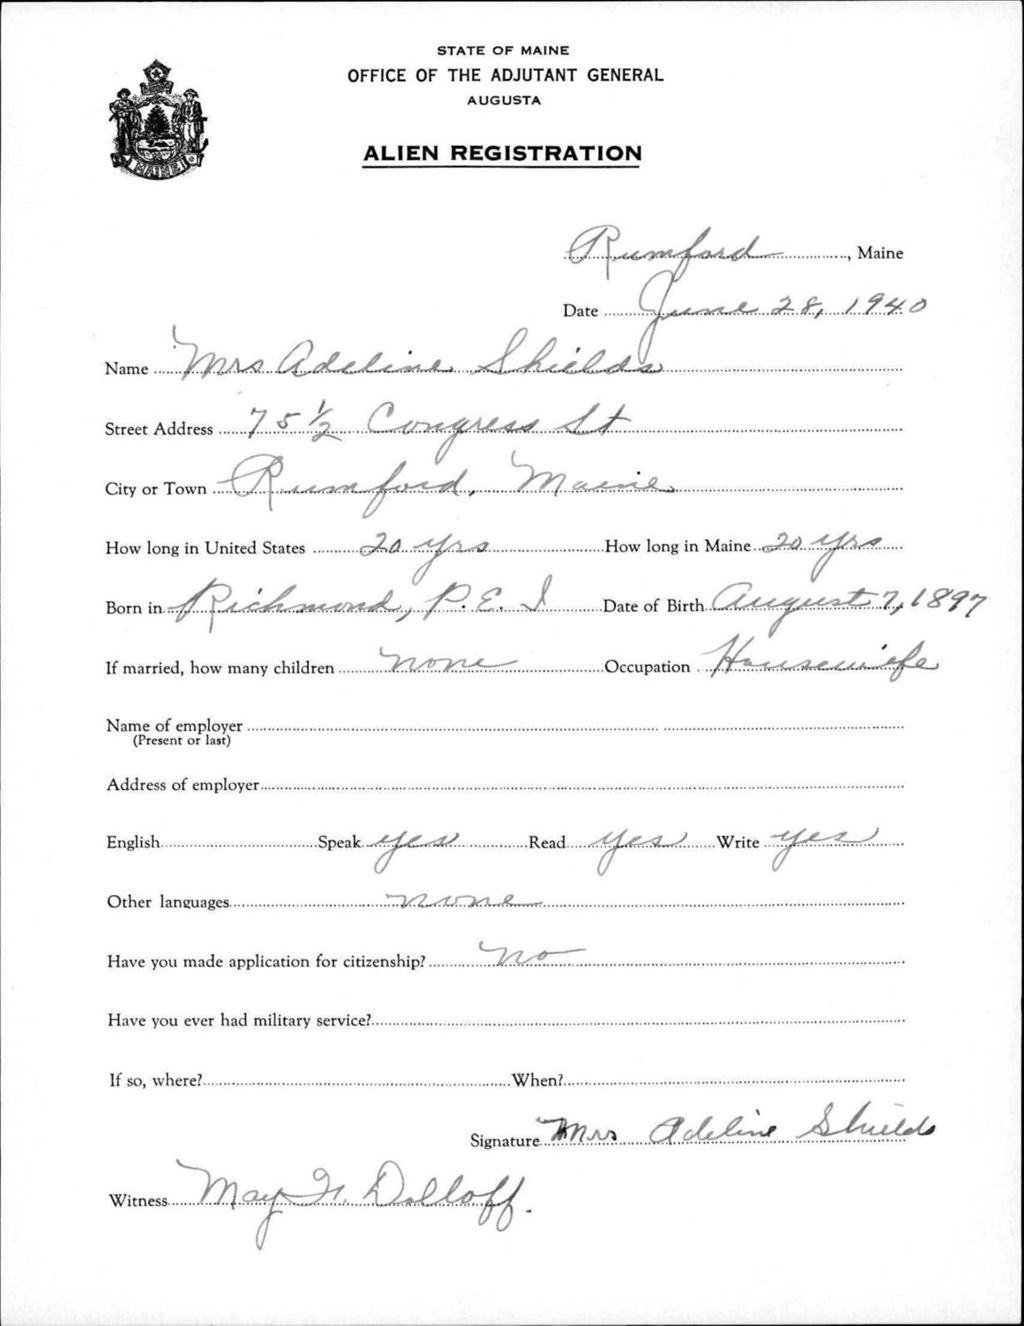 STATE OF MAINE
OFFICE OF THE ADJUTANT GENERAL
AUGUSTA
ALIEN REGISTRATION
MAINE
Rumford, Maine
Date June 28, 1940
Name Mrs Adeline Shields
Street Address 75 1/2 Congress St
City or Town Rumford, Maine
How long in United States 20 yrs How long in Maine 20 yrs
Born in Richmond, P. E. I Date of Birth August 7, 1897
If married, how many children none Occupation Housewife
Name of employer
(Present or last)
Address of employer
English Speak yes Read yes Write yes
Other languages none
Have you made application for citizenship? no
Have you ever had military service?
If so, where? When?
Signature Mrs Adeline Shields
Witness May Dolloff.